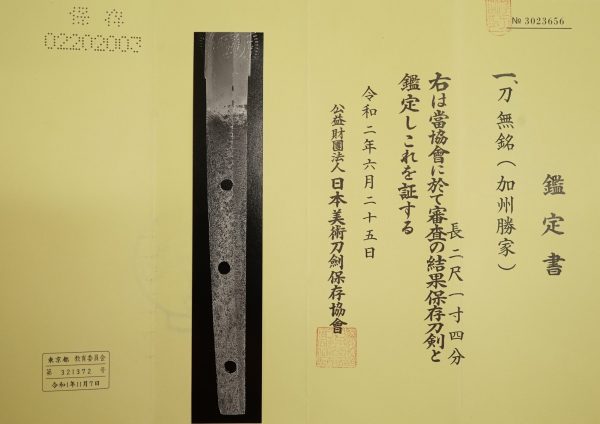 № 3023656
鑑定書
一、刀 無銘（加州勝家）
長二尺一寸四分
右は當協會に於て審査の結果保存刀剣と
鑑定しこれを証する
令和二年六月二十五日
公益財團法人 日本美術刀劍保存協會
保存
02202003
東京都 教育委員会
第 321372 号
令和1年11月7日